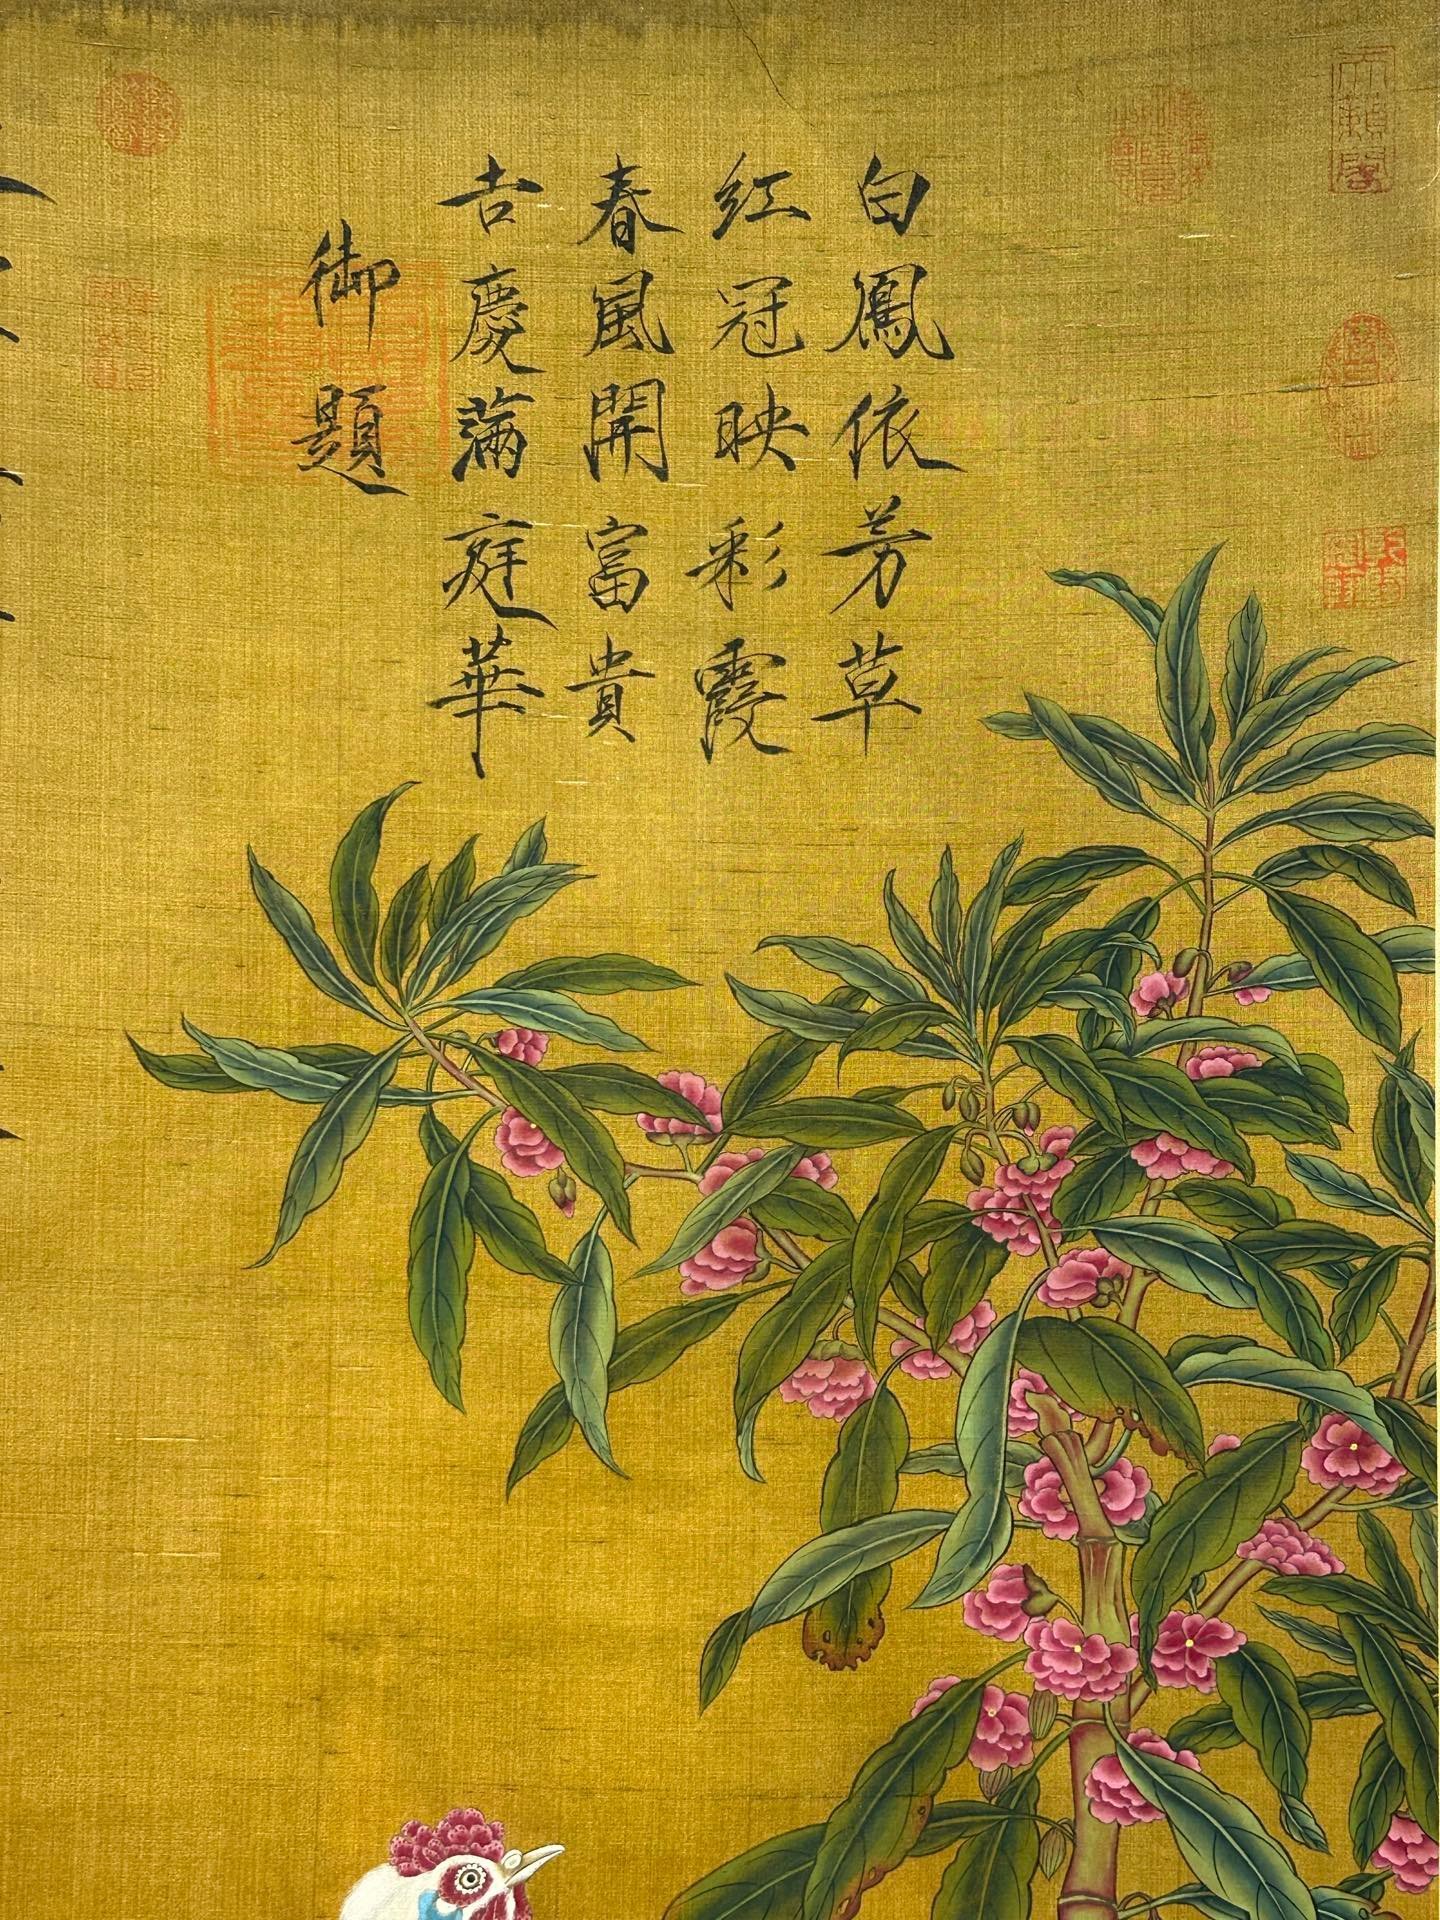 白鳳依芳草
紅冠映彩霞
春風開富貴
吉慶滿庭華
御題
天籟閣